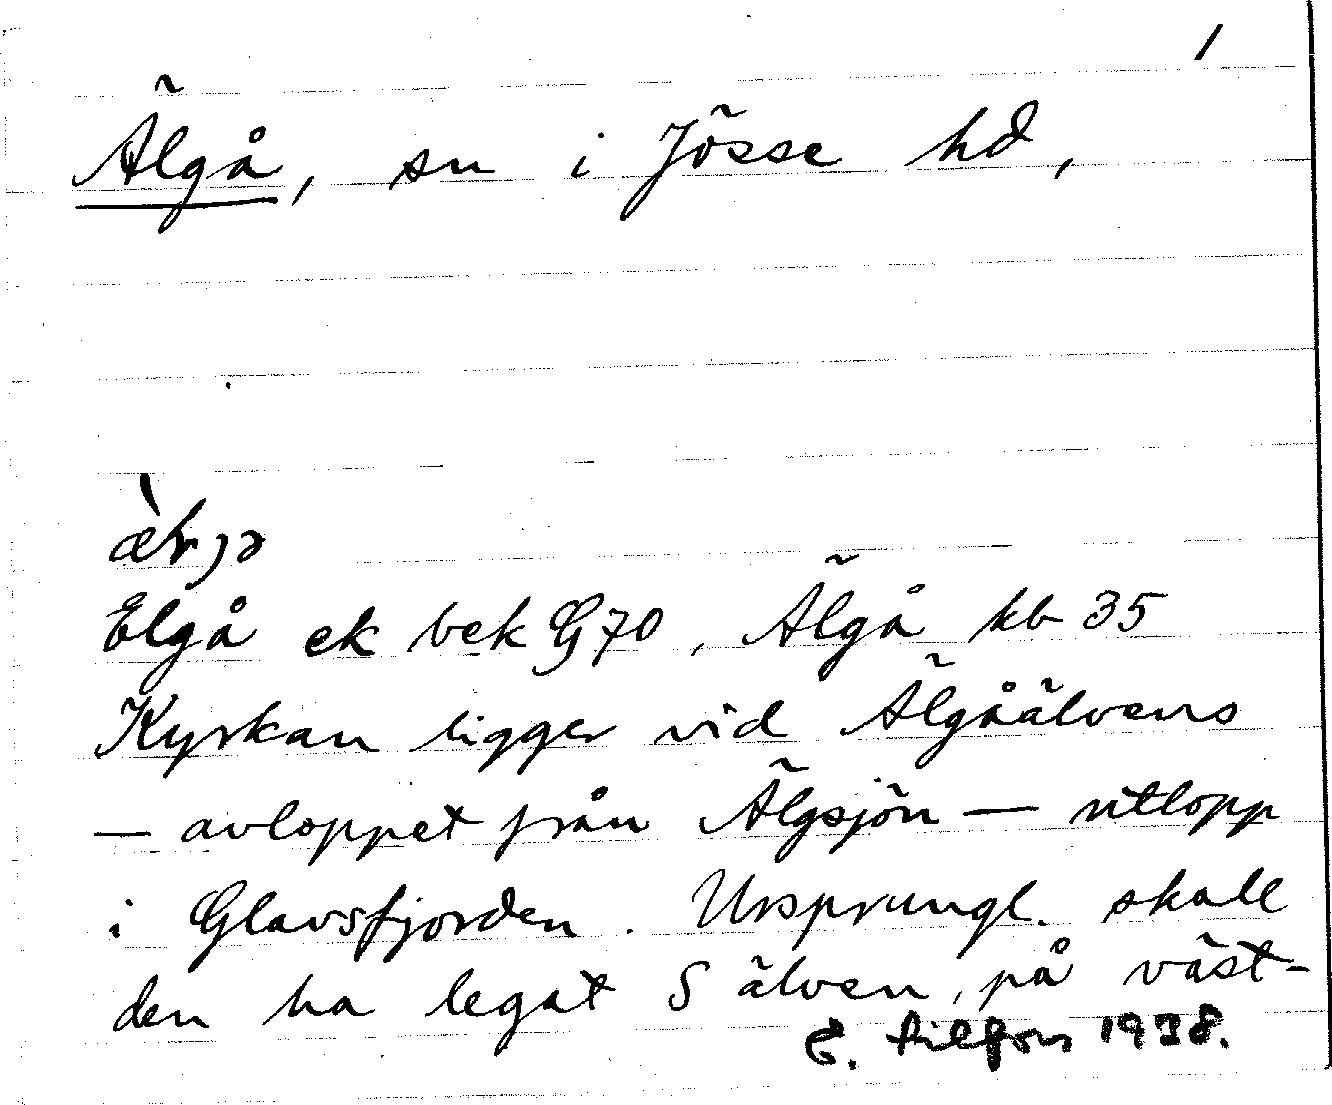 1
Älgå, sn i Jösse hd,
Elgå ek bek G70, Älgå kb 35
Kyrkan ligger vid Älgåälvens
— avloppet från Älgsjön — utlopp
i Glavsfjorden. Ursprungl. skall
den ha legat S älven, på väst-
E. 1938.